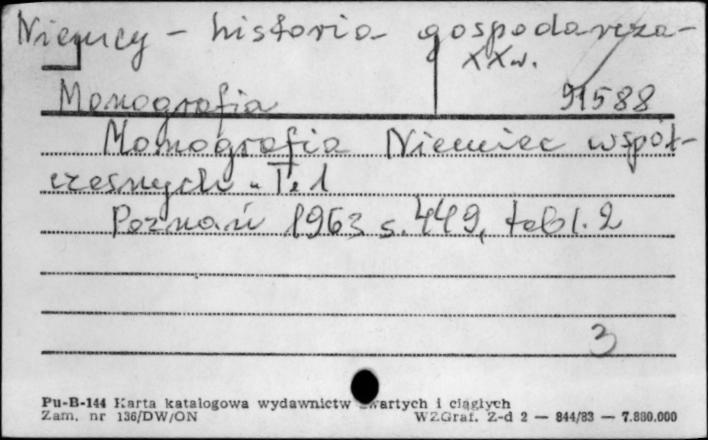 Niemcy - historia gospodarcza-
XX w.
Monografia 91588
Monografia Niemiec współ-
czesnych. T. 1
Poznań 1963 s. 449, tabl. 2
3
Pu-B-144 Karta katalogowa wydawnictw zwartych i ciągłych
Zam. nr 136/DW/ON WZGraf. Z-d 2 — 844/83 — 7.880.000